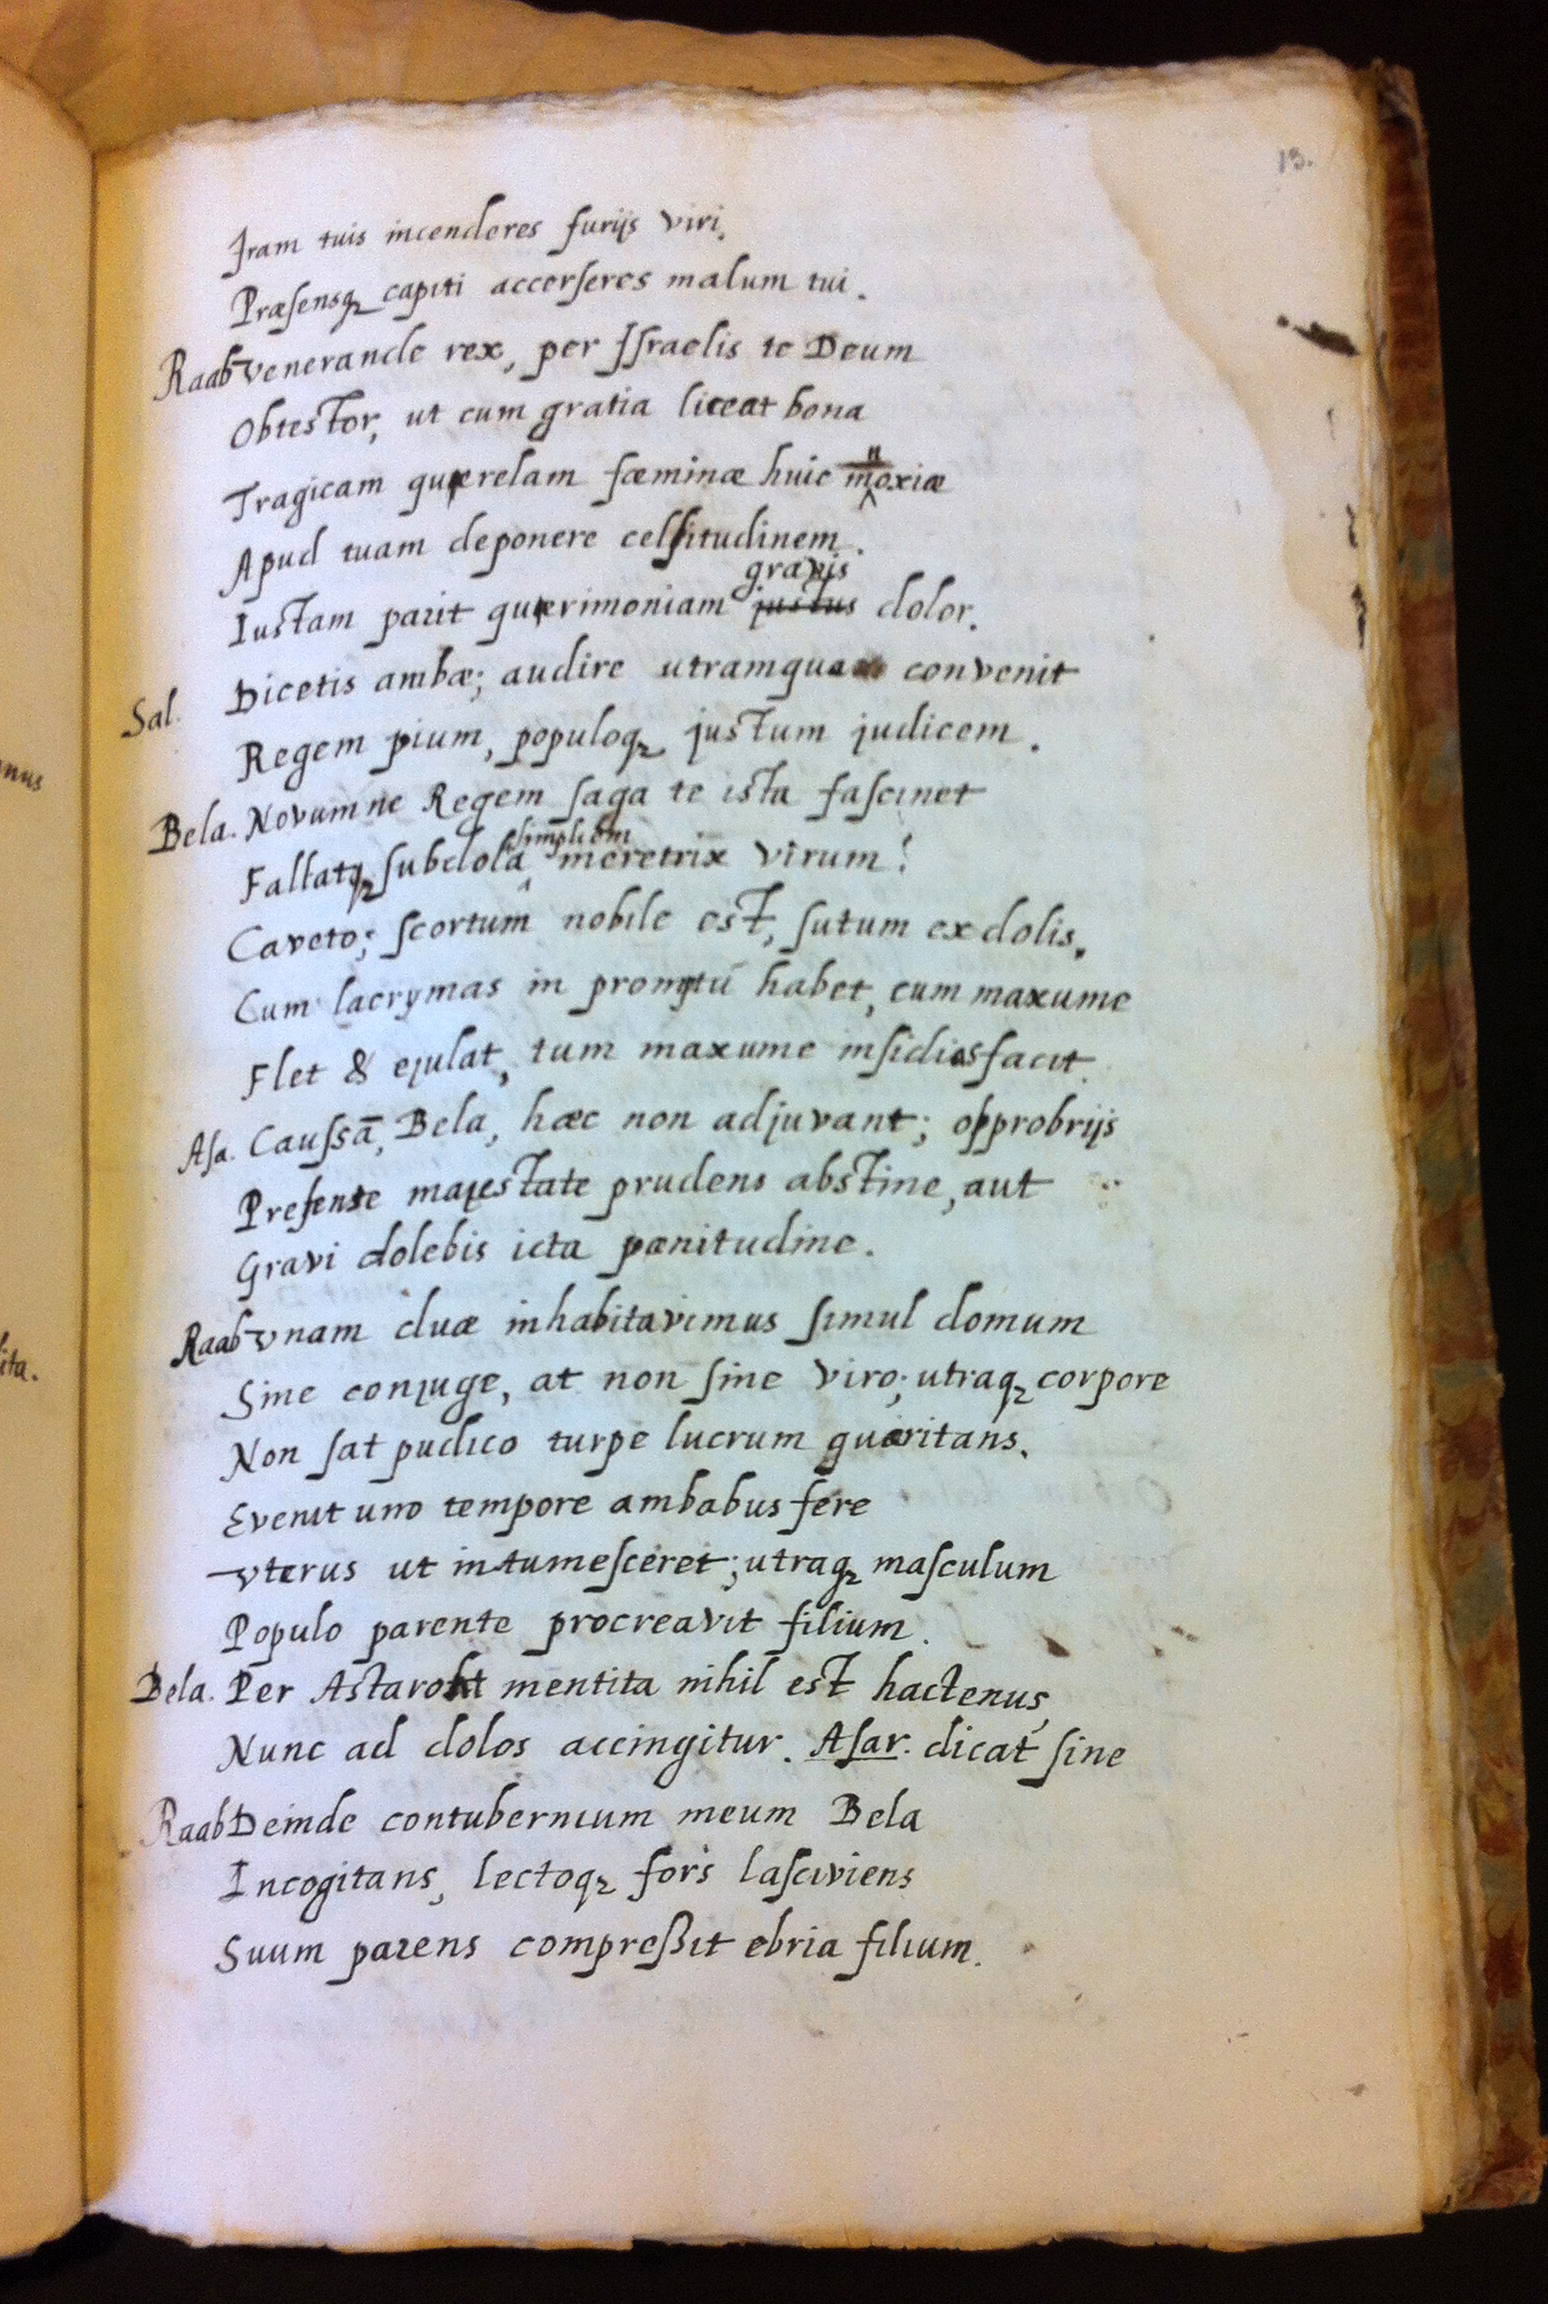 13.
Iram tuis incenderes furijs viri.
Præsensqꝫ capiti accerseres malum tui.
Raab Venerande rex, per Israelis te Deum
Obtestor, ut cum gratia liceat bona
Tragicam querelam fæminæ huic innoxiæ
Apud tuam deponere celsitudinem.
gravis
Iustam parit querimoniam justus dolor.
Sal. Dicetis ambæ; audire utramque convenit
Regem pium, populoqꝫ justum judicem.
Bela. Novumne Regem saga te ista fascinet
simplicem
Fallatqꝫ subdola meretrix virum?
Caveto; scortum nobile est, sutum ex dolis.
Cum lacrymas in promptu habet, cum maxume
Flet & ejulat, tum maxume insidias facit.
Asa. Caussā, Bela, hæc non adjuvant; opprobrijs
Presente majestate prudens abstine, aut
Gravi dolebis icta pœnitudine.
Raab Vnam duæ inhabitavimus simul domum
Sine conjuge, at non sine viro; utraqꝫ corpore
Non sat pudico turpe lucrum quæritans.
Evenit uno tempore ambabus fere
Vterus ut intumesceret; utraqꝫ masculum
Populo parente procreavit filium.
Bela. Per Astaroht mentita nihil est hactenus,
Nunc ad dolos accingitur. Asar. dicat sine
Raab Deinde contubernium meum Bela
Incogitans, lectoqꝫ fors lasciviens
Suum parens compreßit ebria filium.
nus
ita.